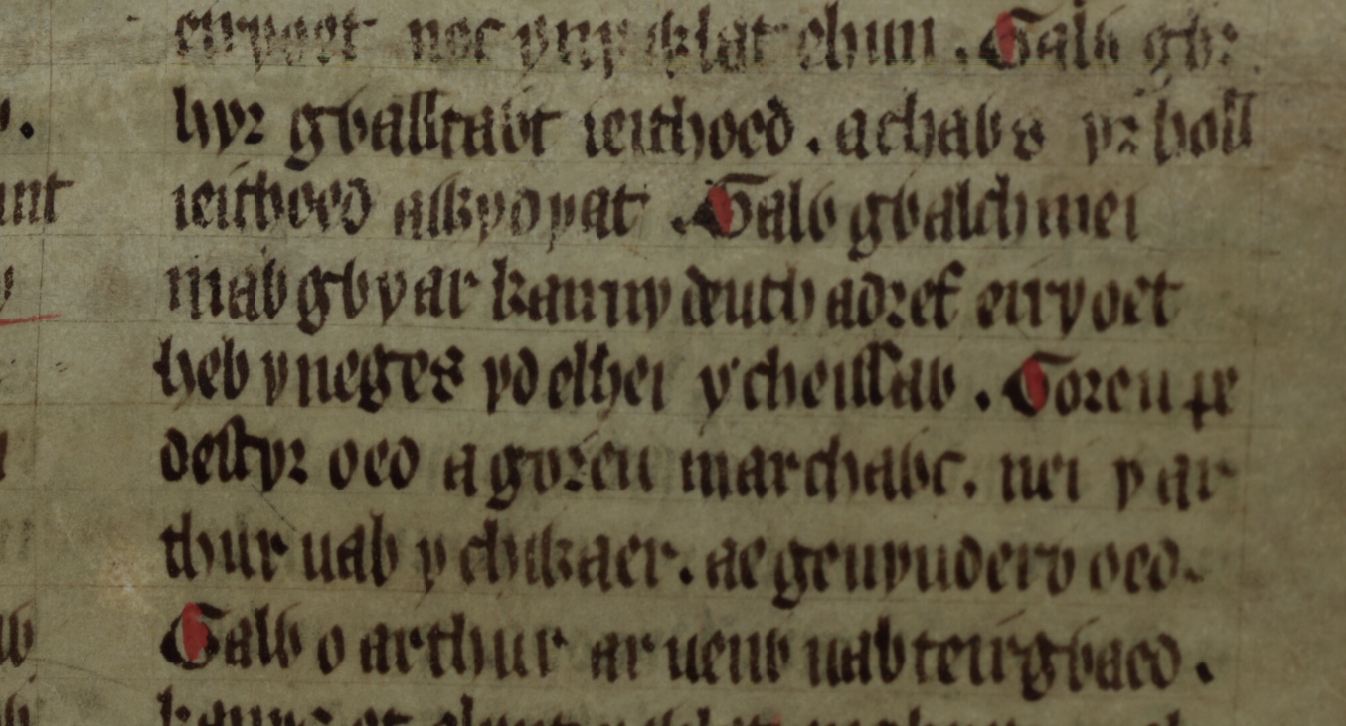 eiryoet noc yny wlat ehun. Galỽ gỽr
hyr gỽalstaỽt ieithoed. achaỽs yr holl
ieithoed a wydyat. Galỽ gỽalchmei
mab gỽyar kanny deuth adref eiryoet
heb y neges yd elhei y cheissaỽ. Goreu pe
destyr oed a goreu marchaỽc. nei y ar
thur uab y chwaer. ae geuynderỽ oed.
Galỽ o arthur ar uenỽ uab teirgỽaed.